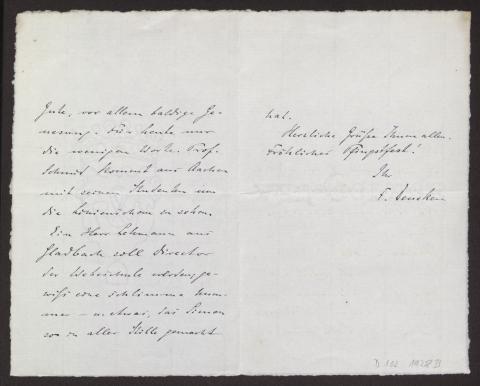 Gute, vor allem baldige Ge-
nesung. Für heute nur
die wenigen Worte. Prof.
Schmit kommt aus Aachen
mit seinen Studenten um
die zu sehen.
Ein Herr Lehmann aus
Gladbach soll Director
der Webeschule werden, ge-
wiß eine schlimme Num-
mer – u. etwas, das Simon
so in aller Stille gemacht
hat.
Herzliche Grüße Ihnen allen.
Fröhliches Pfingstfest!
Ihr
F. Deneken